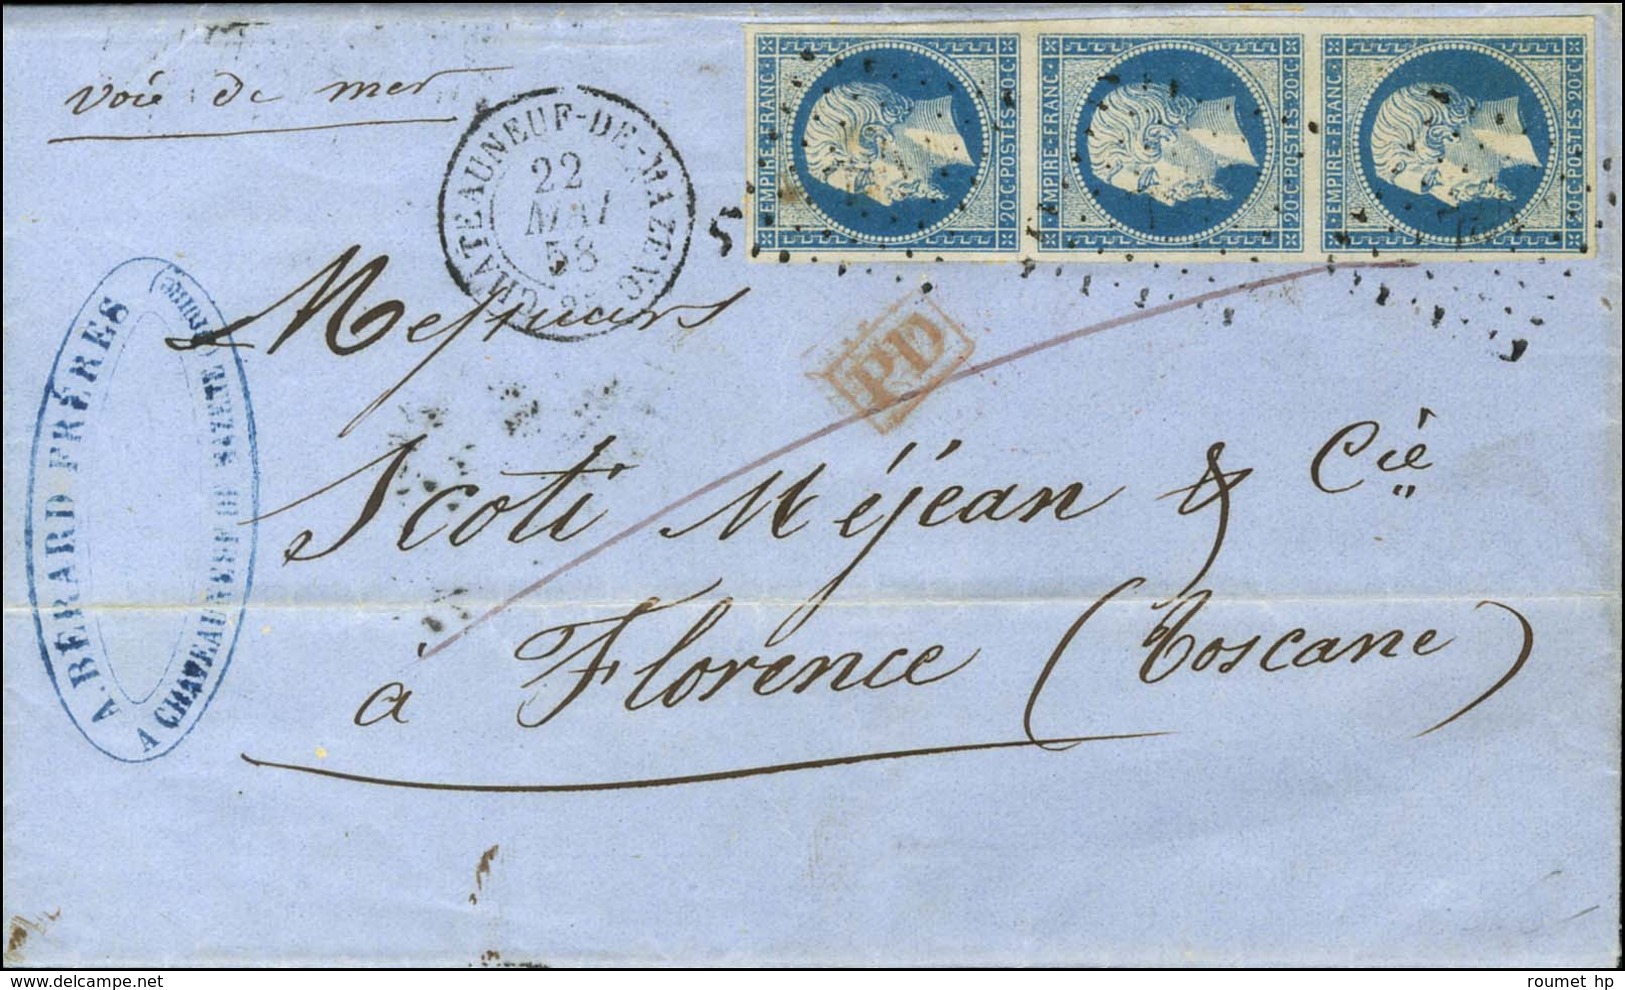 voie de mer
CHATEAUNEUF-DE-MAZENC
22
MAI
58
25
EMPIRE·FRANC·
20 C·POSTES·20 C
EMPIRE·FRANC·
20 C·POSTES·20 C
EMPIRE·FRANC·
20 C·POSTES·20 C
PD
A. BERARD FRÉRES
A CHATEAUNEUF DE MAZENC (Drome)
Messieurs
Scoti Méjean & Cie
à Florence (Toscane)
roumet hp